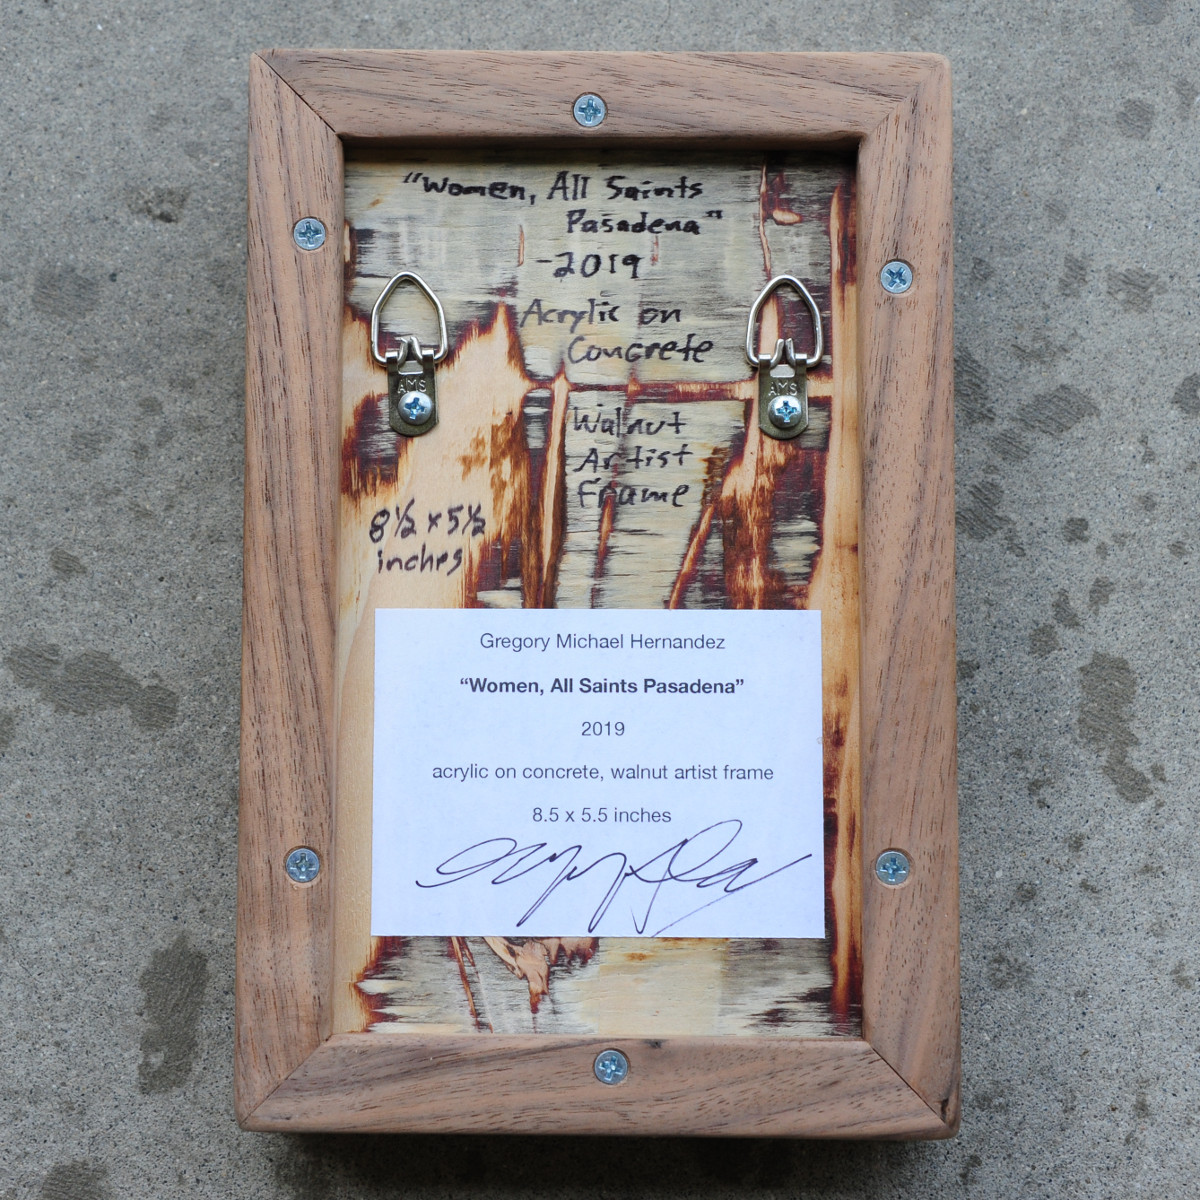 "Women, All Saints
Pasadena"
-2019
Acrylic on
Concrete
AMS
AMS
Walnut
Artist
Frame
8½ x 5½
inches
Gregory Michael Hernandez
“Women, All Saints Pasadena”
2019
acrylic on concrete, walnut artist frame
8.5 x 5.5 inches